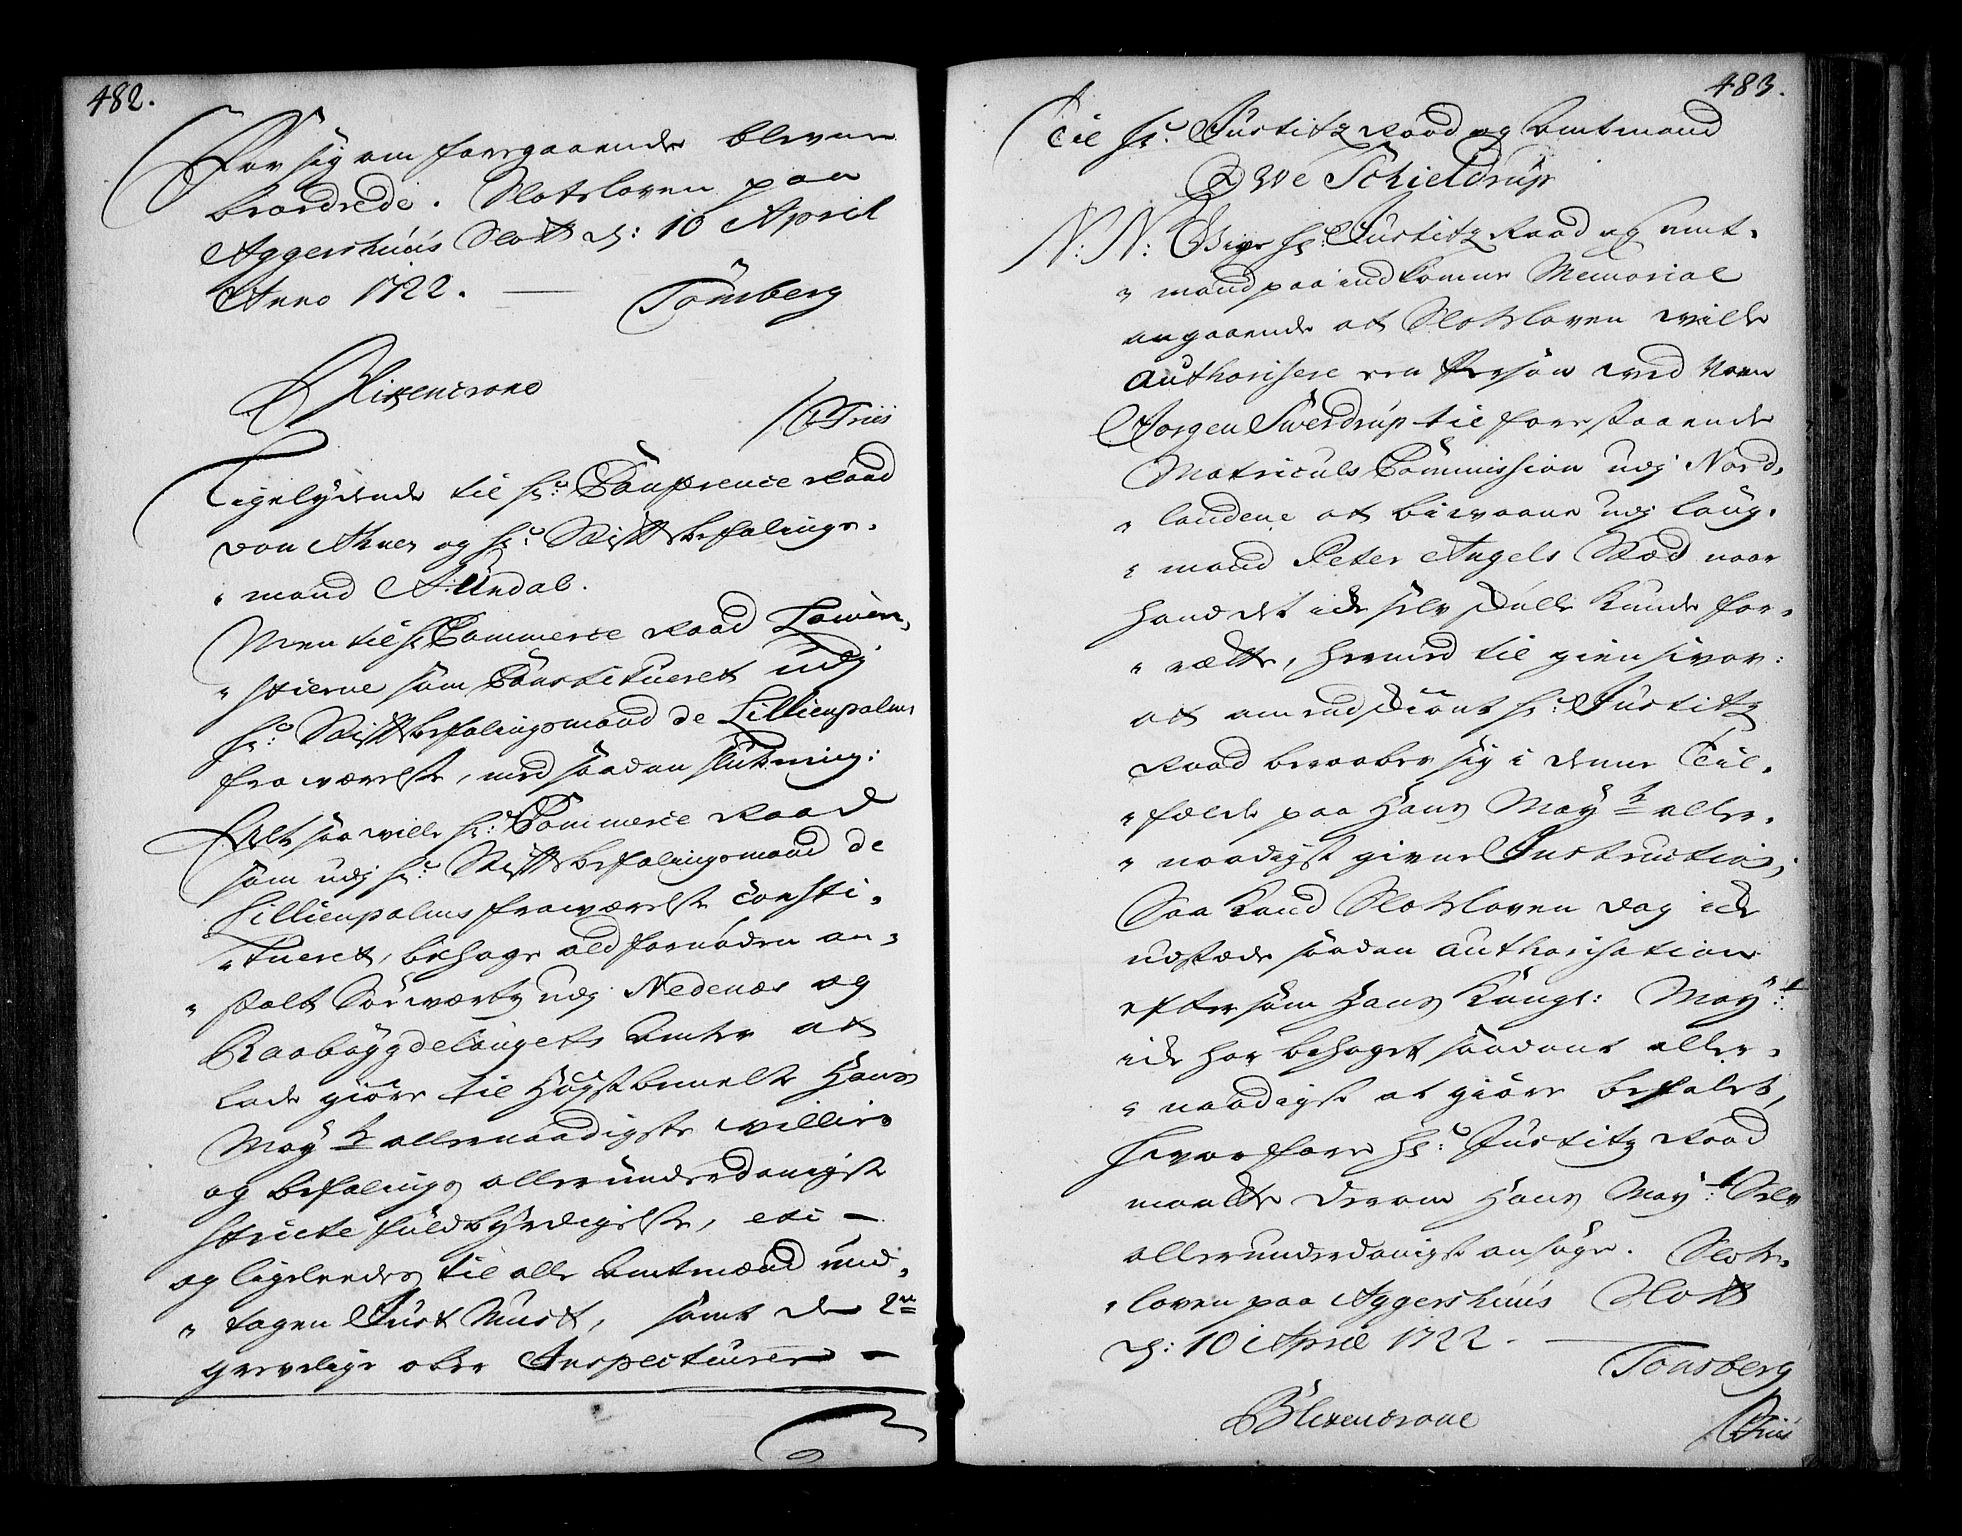 482.
For sig om foregaaende bleven
beordrede. Slotsloven paa
Aggershuus Slott d: 10 April
Anno 1722. Tönsberg
Blixencrone
CFriis
Ligelydende til Hr: Conference Raad
von Ahnen og Hr: Stiftsbefalings-
mand A: Undal.
Men til Hr Commerce Raad Lowen-
stierne som Constitueret udj
Hr: Stiftsbefalingsmand de Lillienpalms
fraværelse, med saadan slutning:
Alt saa wille Hr: Commerce Raad
som udj Hr: Stiftsbefalingsmand de
Lillienpalms fraværelse Consti-
tueret, behage ald fornøden an-
stalt udj Nedenæs og
Raabøygdelaugets Amter at
lade giøre til Høystbemelte Hans
May: allernaadigste willies
og befalings allerunderdanigste
stricte fuldbyrdigelse, etc
og ligeledes til alle Amtmænd und-
tagen Just Must, samt de 2de
grevelige ober Inspecteurer
483.
Til Hr: Justitz Raad og Amtmand
Owe Schieldrup
N: N: Hr: Justitz Raad og Amt-
mand paa indkomne Memorial
angaaende at Slotsloven wilde
Authorisere een Person ved Navn
Jörgen Swerdrup til forestaaende
Matriculs Commission udj Nord-
landene at bievaane udj Laug-
mand Peter Angels Stæd naar
hand det icke selv skulle kunde for-
rætte, hermed til giensvar:
at omendskiönt Hr: Justitz
Raad beraaber sig i denne Til-
fælde paa Hans May: aller-
naadigst givne Instruction,
Saa kand Slotsloven dog icke
udstæde saadan Authorisation
eftersom Hans Kongl: May:
icke har behaget saadant aller-
naadigst at giöre befalet,
hvorfore Hr: Justitz Raad
maatte derom Hans May: Selv
allerunderdanigst ansöge. Slots-
loven paa Aggershuus Slott
d: 10 April 1722.
Tonsberg
Blixencrone
CFriis